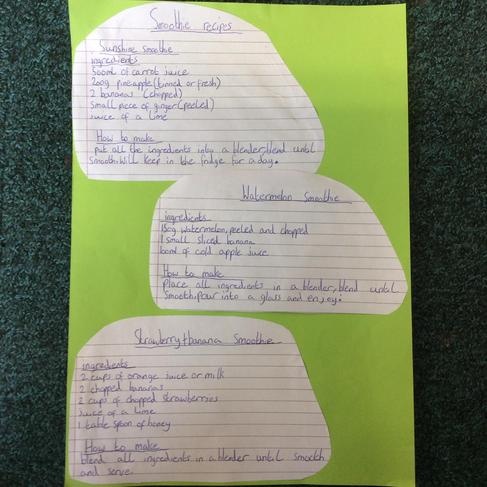 Smoothie recipes
Sunshine Smoothie
ingredients
500ml of carrot juice
200g pineapple (tinned or fresh)
2 bananas (chopped)
Small piece of ginger (peeled)
Juice of a lime
How to make
put all the ingredients into a blender, blend until
Smooth. Will keep in the fridge for a day.
Watermelon Smoothie
ingredients
150g watermelon, peeled and chopped
1 small sliced banana
of cold apple juice
How to make
Place all ingredients in a blender, blend until
Smooth. Pour into a glass and enjoy.
Strawberry + banana Smoothie
ingredients
2 cups of orange juice or milk
2 chopped bananas
2 cups of chopped strawberries
Juice of a lime
1 table spoon of honey
How to make
blend all ingredients in a blender until smooth
and serve.